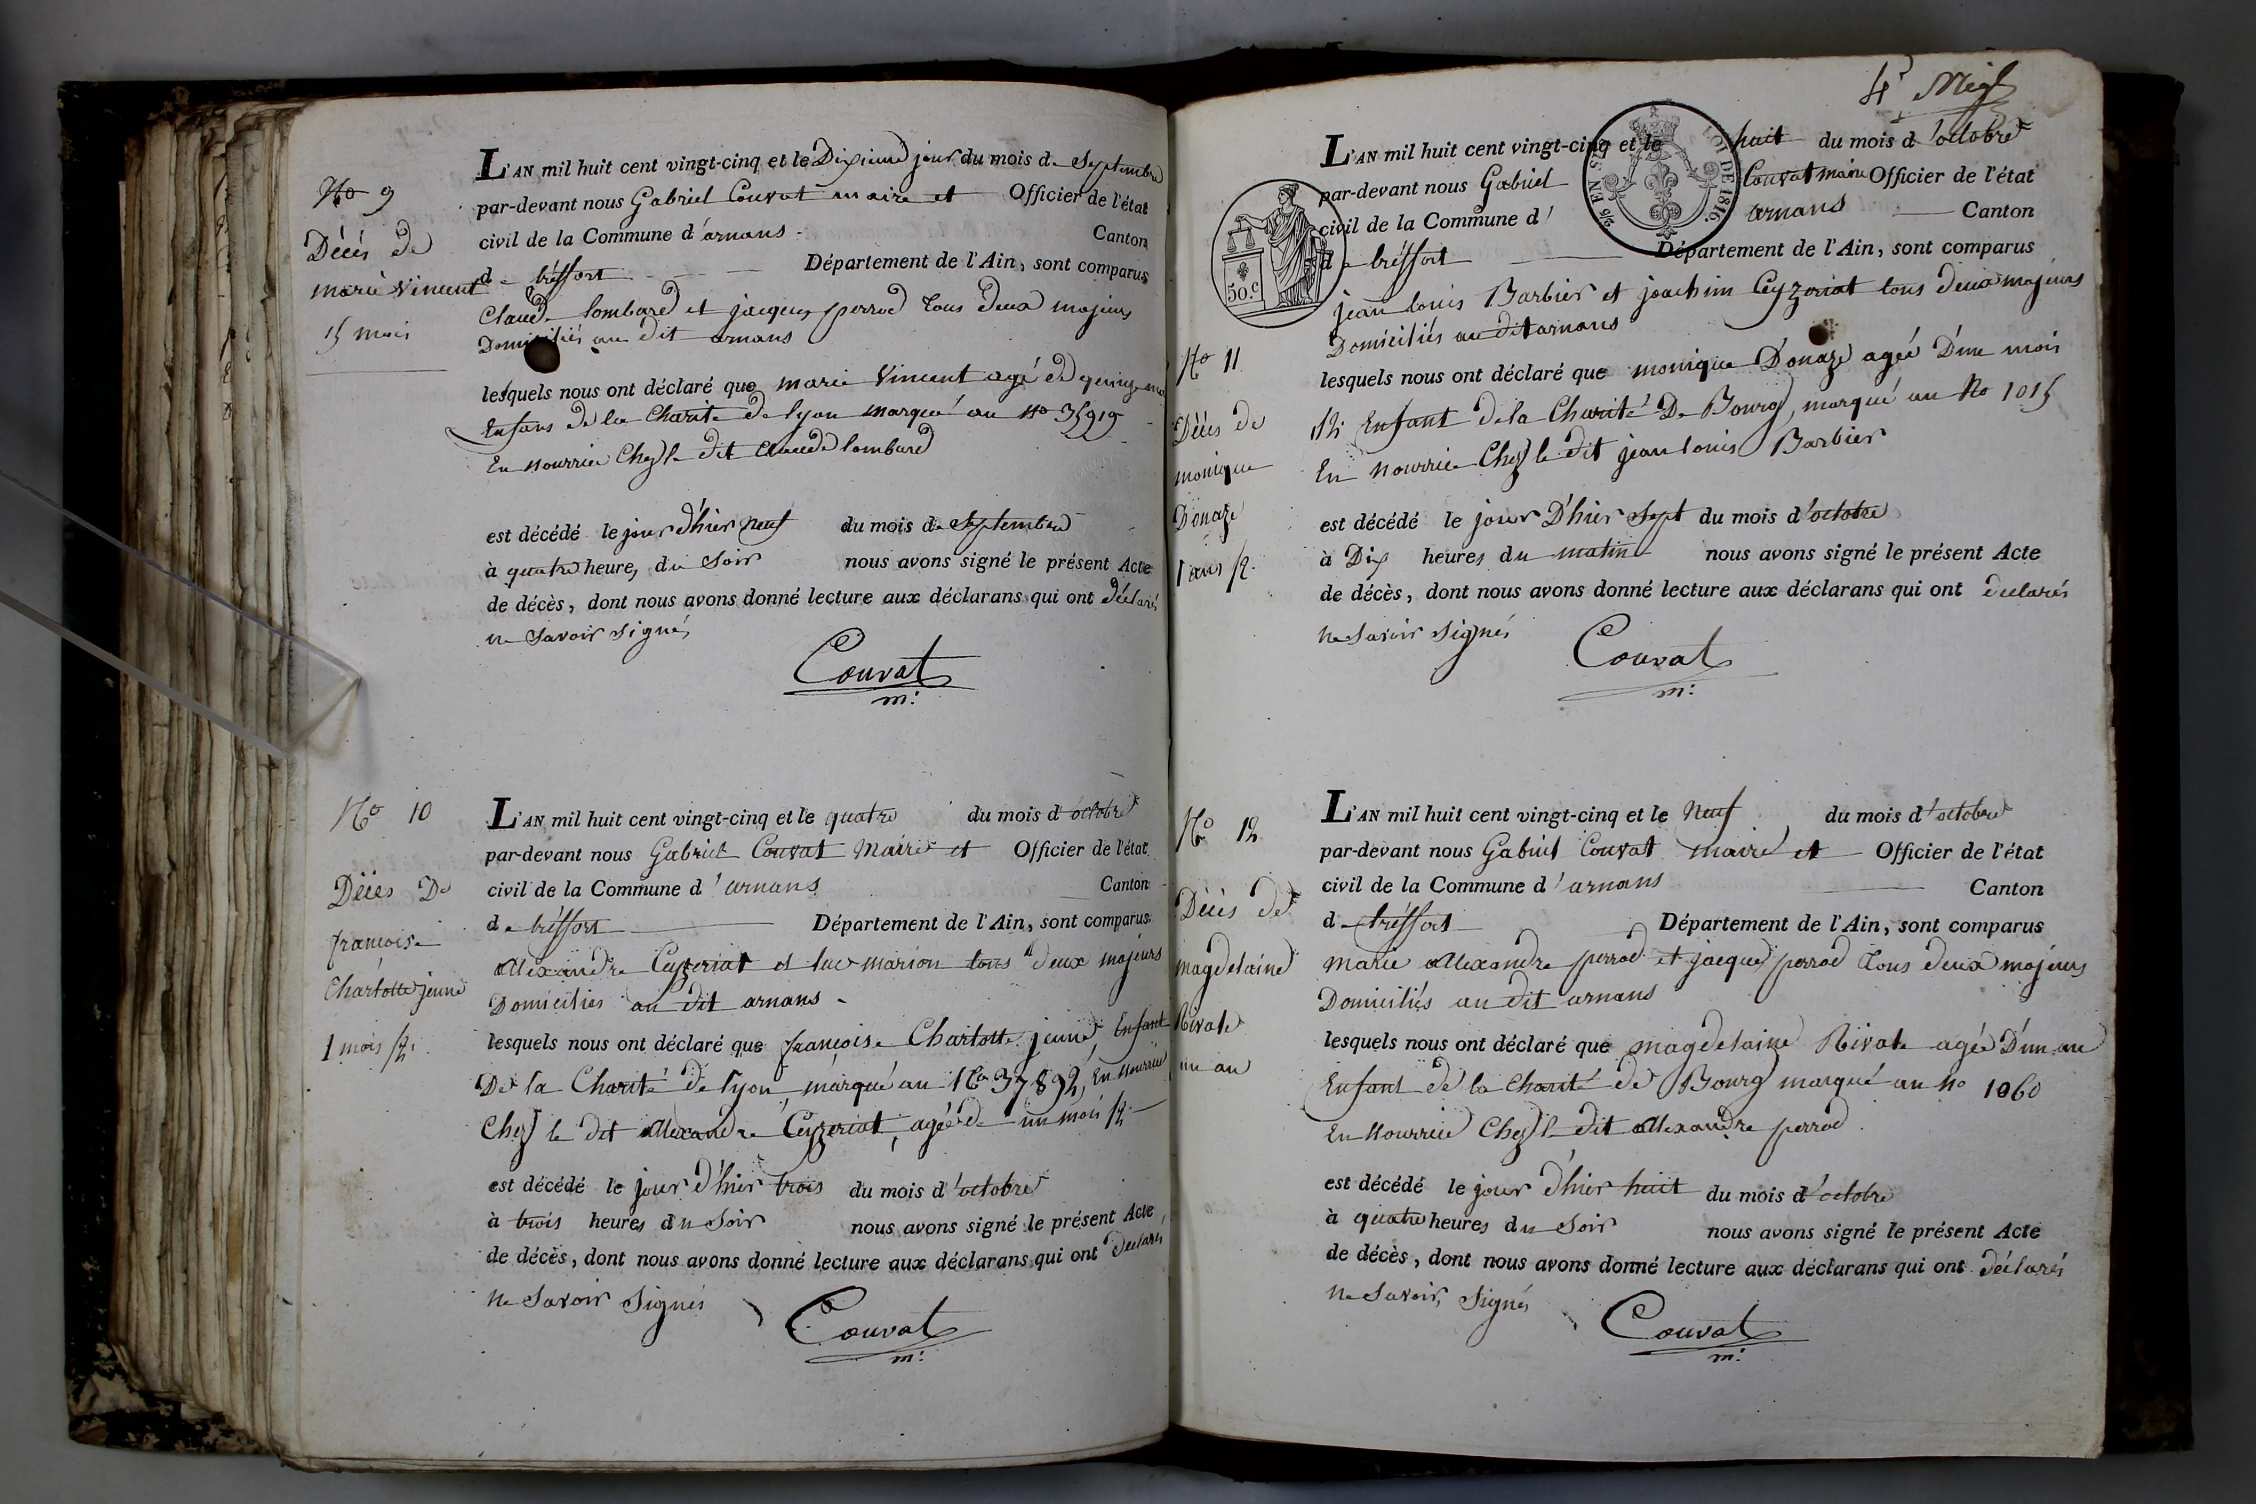 No 9
Décès de
marie Vincent
15 mois
L'AN mil huit cent vingt-cinq et le Dixieme jour du mois de Septembre
par-devant nous Gabriel Couvat maire et Officier de l'état
civil de la Commune d'arnans Canton
de tréffort Département de l'Ain, sont comparus
Claude lombard et jacques perrod tous deux majeurs
Domiciliés au dit arnans
lesquels nous ont déclaré que marie Vincent agé de quinze mois
Enfans de la Charité de lyon marqué au No 35919
En nourrice Chez le dit Claude lombard
est décédé le jour d'hier neuf du mois de Septembre
à quatre heures du Soir nous avons signé le présent Acte
de décès, dont nous avons donné lecture aux déclarans qui ont déclarés
ne Savoir Signés
Couvat
m:
No 10
Décès De
francoise
Charlotte jeune
1 mois 1/2
L'AN mil huit cent vingt-cinq et le quatre du mois d'octobre
par-devant nous Gabriel Couvat Maire et Officier de l'état
civil de la Commune d'arnans Canton
de tréffort Département de l'Ain, sont comparus
allexandre Ceyzeriat et luc marion tous deux majeurs
Domiciliés au dit arnans
lesquels nous ont déclaré que françoise Charlotte jeune, Enfant
De la Charité de lyon, marqué au No 37892, En nourrice
Chez le dit allexandre Ceyzeriat, agée de un mois 1/2
est décédé le jour d'hier trois du mois d'octobre
à trois heures du Soir nous avons signé le présent Acte
de décès, dont nous avons donné lecture aux déclarans qui ont declarés
ne Savoir Signés
Couvat
m:
4e
L'AN mil huit cent vingt-cinq et le huit du mois d'octobre
par-devant nous Gabriel Couvat maire Officier de l'état
civil de la Commune d'arnans Canton
de tréffort Département de l'Ain, sont comparus
LOI DE 1816.
50.c
jean louis Barbier et joachim Ceyzeriat tous deux majeurs
Domiciliés au dit arnans
No 11
Décès de
monique
Donaze
1 ans 1/2
lesquels nous ont déclaré que monique Donaze agée D'une mois
1/2 Enfant de la Charité De Bourg, marqué au No 1015
En nourrice Chez le dit jean louis Barbier
est décédé le jour D'hier Sept du mois d'octobre
à Dix heures du matin nous avons signé le présent Acte
de décès, dont nous avons donné lecture aux déclarans qui ont declarés
ne Savoir Signés
Couvat
m:
No 12
Décès de
magdelaine
Rivate
un an
L'AN mil huit cent vingt-cinq et le Neuf du mois d'octobre
par-devant nous Gabriel Couvat maire et Officier de l'état
civil de la Commune d'arnans Canton
de tréffort Département de l'Ain, sont comparus
marie allexandre perrod et jacques perrod tous deux majeurs
Domiciliés au dit arnans
lesquels nous ont déclaré que magdelaine Rivate agée D'un an
Enfant de la Charité de Bourg marqué au No 1060
En nourrice Chez le dit allexandre perrod
est décédé le jour d'hier huit du mois d'octobre
à quatre heures du Soir nous avons signé le présent Acte
de décès, dont nous avons donné lecture aux déclarans qui ont déclarés
ne Savoir Signés
Couvat
m: